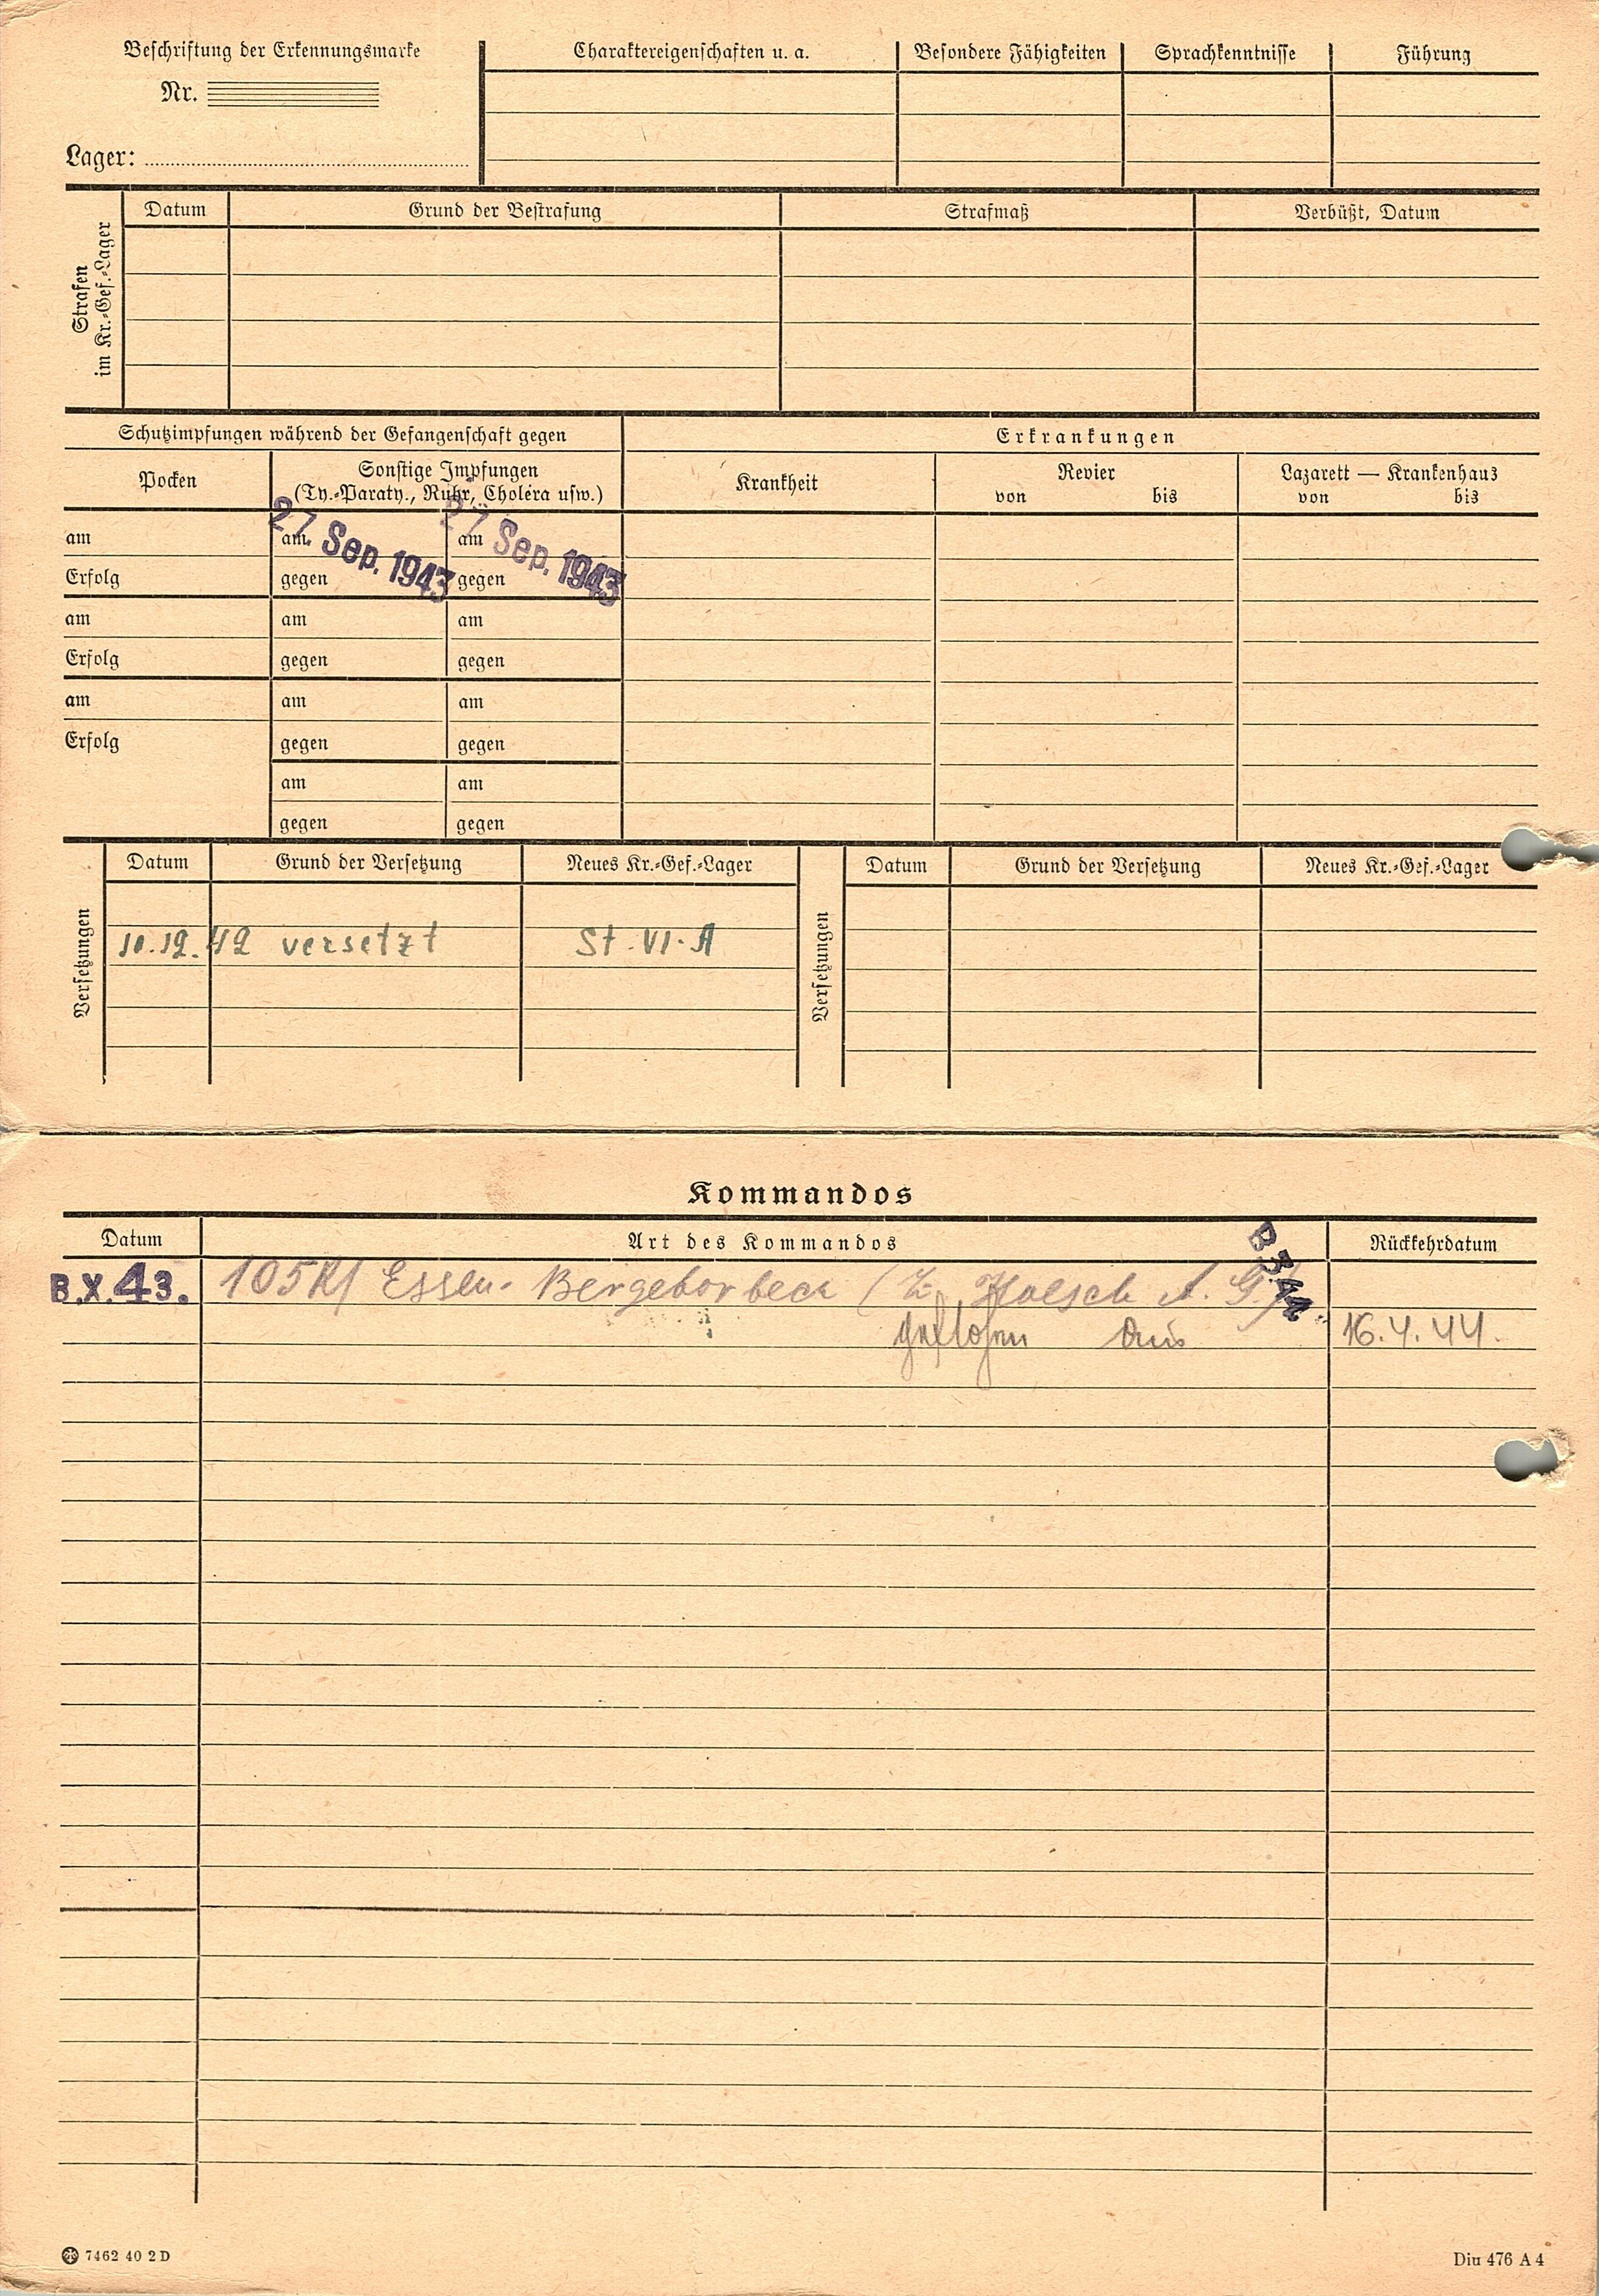 Beschriftung der Erkennungsmarke
Nr.
Lager:
Charaktereigenschaften u. a.
Besondere Fähigkeiten
Sprachkenntnisse
Führung
Strafen
im Kr.-Gef.-Lager
Datum
Grund der Bestrafung
Strafmaß
Verbüßt, Datum
Schutzimpfungen während der Gefangenschaft gegen
Erkrankungen
Pocken
Sonstige Impfungen
(Ty.-Paraty., Ruhr, Cholera usw.)
Krankheit
Revier
von bis
Lazarett — Krankenhaus
von bis
am am am
27. Sep. 1943 27 Sep. 1943
Erfolg gegen gegen
am am am
Erfolg gegen gegen
am am am
Erfolg gegen gegen
am am
gegen gegen
Versetzungen
Datum Grund der Versetzung Neues Kr.-Gef.-Lager
10.12.42 versetzt St. VI. A
Versetzungen
Datum Grund der Versetzung Neues Kr.-Gef.-Lager
Kommandos
Datum Art des Kommandos Rückkehrdatum
8.X.43. 105 Essen-Bergeborbeck ( Hoesch A. G.)
geflohen am 16.4.44.
7462 40 2 D
Din 476 A 4